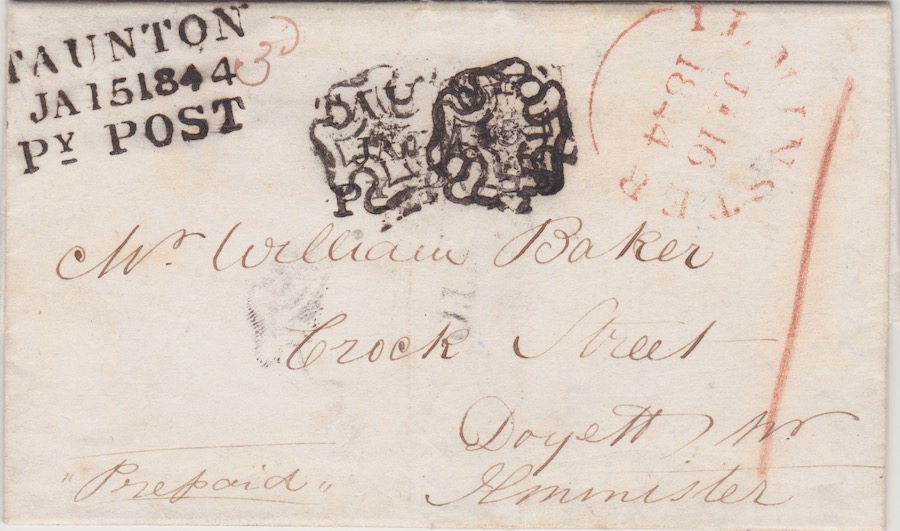 TAUNTON
JA 15 1844
PY POST
3d
JA 16
1844
Mr William Baker
Crock Street
Doyett
Ilminister
"Prepaid"